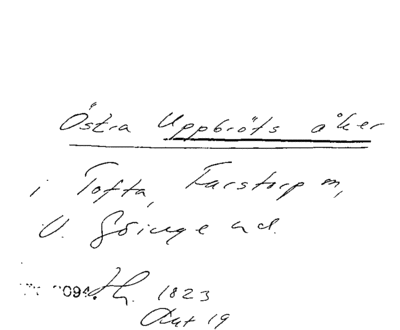 Östra Uppbröts åker
i Tofta, Farstorp m,
V. Göinge hd.
094. 1823
Akt 19